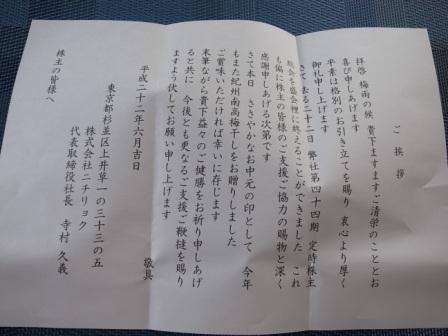 ご挨拶
拝啓 梅雨の候 貴下ますますご清栄のこととお
喜び申しあげます
平素は格別のお引き立てを賜り 衷心より厚く
御礼申し上げます
さて去る二十二日 弊社第四十四期 定時株主
総会を盛会裡に終えることができました これ
も偏に株主の皆様のご支援ご協力の賜物と深く
感謝申しあげる次第です
さて本日 ささやかなお中元の印として 今年
もまた紀州南高梅干しをお贈りしました
ご賞味いただければ幸いに存じます
末筆ながら貴下益々のご健勝をお祈り申しあげ
ると共に 今後とも更なるご支援ご鞭撻を賜り
ますよう伏してお願い申し上げます
敬具
平成二十二年六月吉日
東京都杉並区上井草一の三十三の五
株式会社ニチリョク
代表取締役社長 寺村 久義
株主の皆様へ